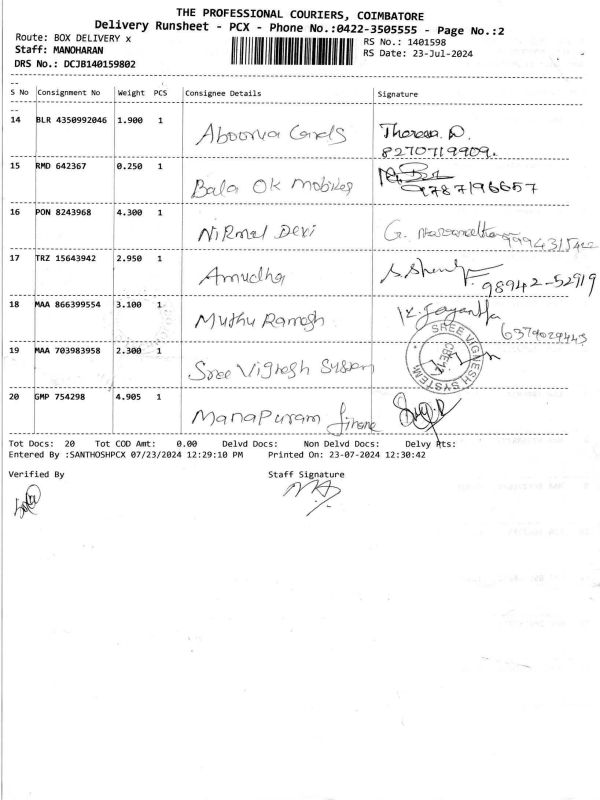 THE PROFESSIONAL COURIERS, COIMBATORE
Delivery Runsheet - PCX - Phone No.:0422-3505555 - Page No.:2
Route: BOX DELIVERY x
RS No.: 1401598
Staff: MANOHARAN
RS Date: 23-Jul-2024
DRS No.: DCJB140159802
S No Consignment No Weight PCS Consignee Details Signature
14 BLR 4350992046 1.900 1 Aboorva Cards Theresa. D.
8270719909.
15 RMD 642367 0.250 1 Bala OK Mobiles
9787196657
16 PON 8243968 4.300 1 Nirmal Devi G.
17 TRZ 15643942 2.950 1 Amudha
98942-52919
18 MAA 866399554 3.100 1 Muthu Ramesh K. Jayantha
6379029445
19 MAA 703983958 2.300 1 Sree Vignesh System SREE VIGNESH SYSTEM
CBE-12
20 GMP 754298 4.905 1 Manapuram finance
Tot Docs: 20 Tot COD Amt: 0.00 Delvd Docs: Non Delvd Docs: Delvy Pts:
Entered By :SANTHOSHPCX 07/23/2024 12:29:10 PM Printed On: 23-07-2024 12:30:42
Verified By Staff Signature